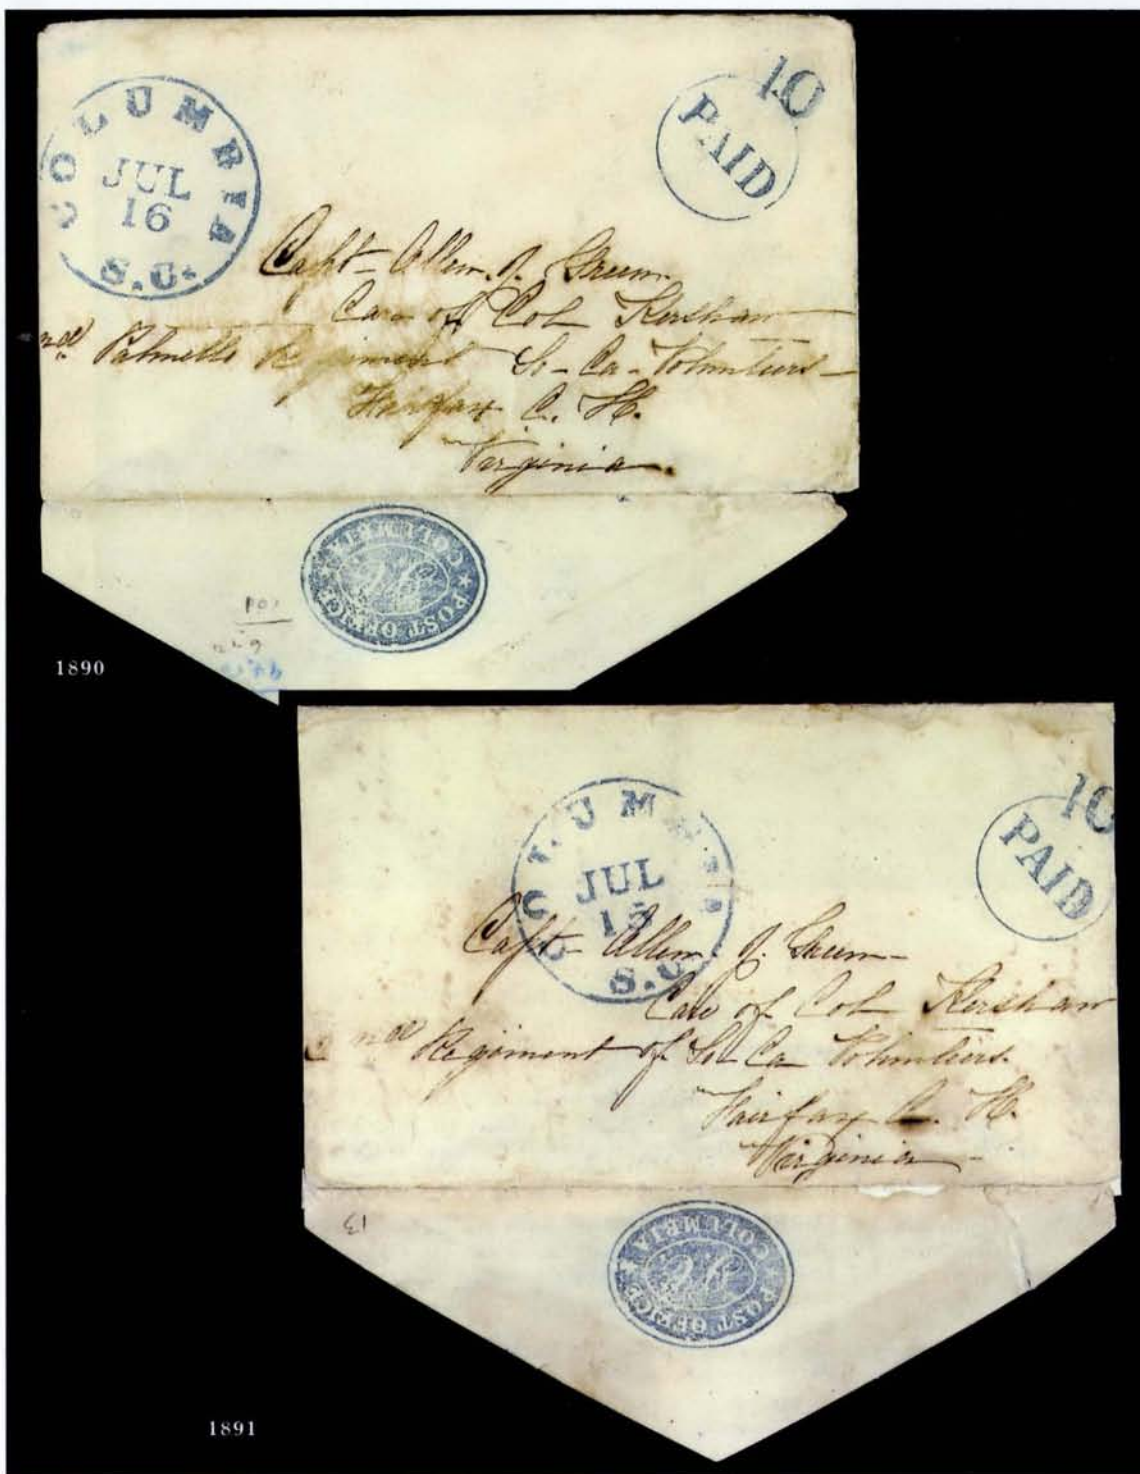 COLUMBIA
JUL
16
S.C.
10
PAID
Capt- Allen. J. Green
Care of Col Kershaw
nd Palmetto Regiment So-Ca-Voluntiers-
Fairfax C. H.
Virginia.
★ POST OFFICE ★
COLUMBIA
S.C.
1890
COLUMBIA
JUL
15
S.C.
10
PAID
Capt- Allen. J. Green-
Care of Col Kershaw
2nd Regiment of So Ca Voluntiers.
Fairfax C. H.
Virginia-
13
★ POST OFFICE ★
COLUMBIA
S.C.
1891